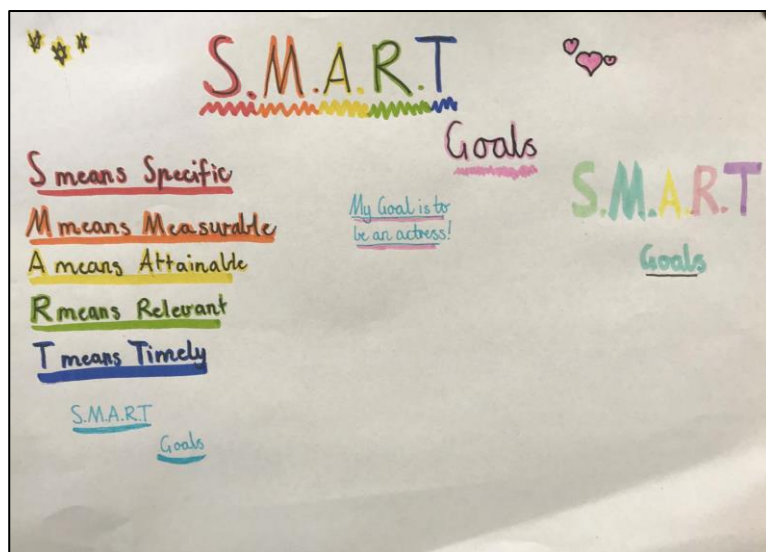 S.M.A.R.T
Goals
S means Specific
M means Measurable
A means Attainable
R means Relevant
T means Timely
S.M.A.R.T
Goals
My Goal is to
be an actress!
S.M.A.R.T
Goals